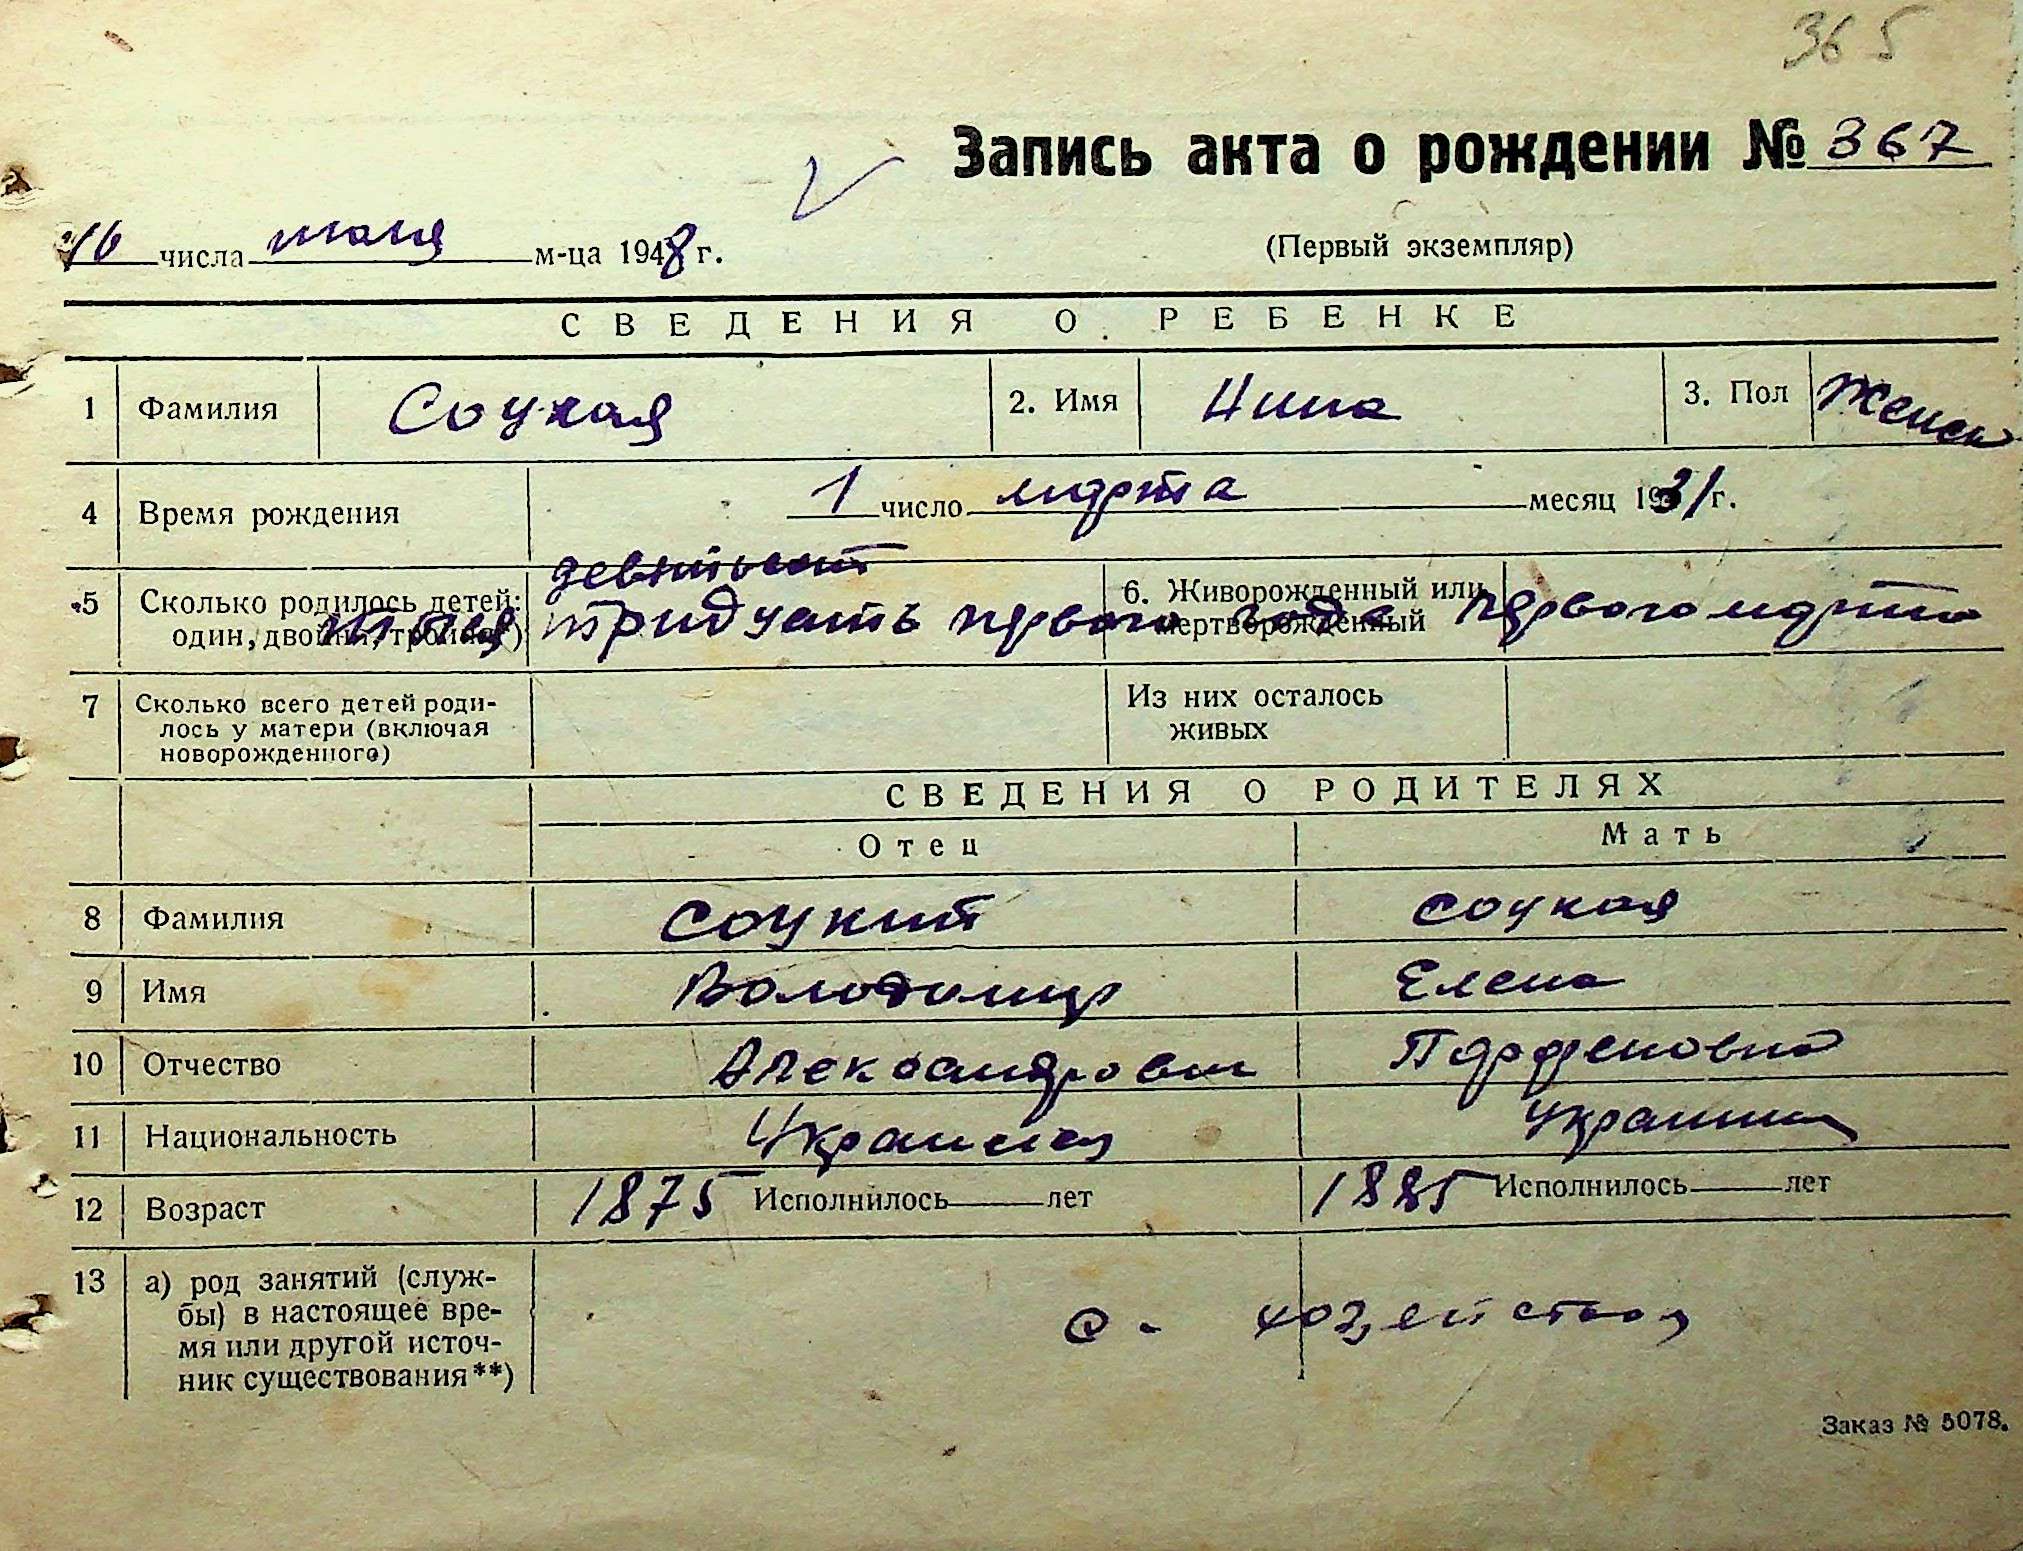 365
Запись акта о рождении № 367
16 числа июля м-ца 1948 г.
(Первый экземпляр)
СВЕДЕНИЯ О РЕБЕНКЕ
1 Фамилия Соцкая 2. Имя Нина 3. Пол женск
4 Время рождения 1 число марта месяц 1931 г.
девятьсот
5 Сколько родилось детей: один, двойни, тройни*) 6. Живорожденный или мертворожденный
тыся тридцать первого года первого марта
7 Сколько всего детей роди-
лось у матери (включая
новорожденного)
Из них осталось
живых
СВЕДЕНИЯ О РОДИТЕЛЯХ
Отец Мать
8 Фамилия Соцкий Соцкая
9 Имя Володимир Елена
10 Отчество Александрович Парфеновна
11 Национальность Украинец Украинка
12 Возраст 1875 Исполнилось лет 1885 Исполнилось лет
13 а) род занятий (служ-
бы) в настоящее вре-
мя или другой источ-
ник существования**)
с-хозяйством
Заказ № 5078.